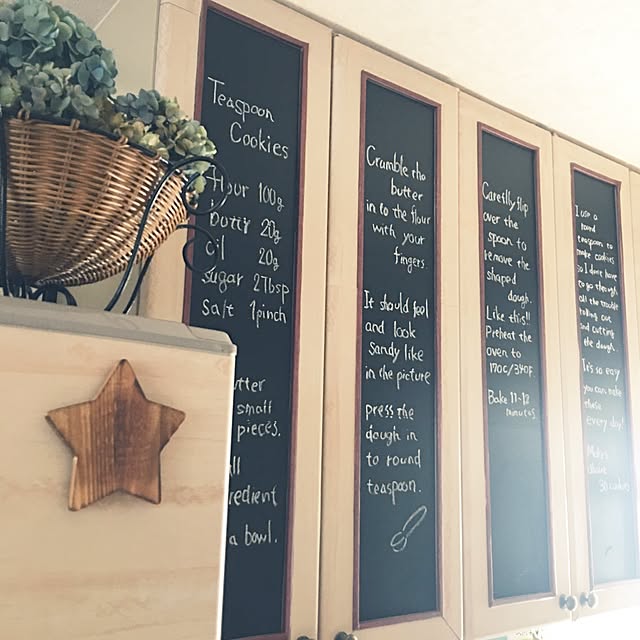 Teaspoon
Cookies
flour 100g
butter 20g
oil 20g
sugar 2Tbsp
salt 1pinch
small
pieces.
a bowl.
Crumble rho
butter
in to the flour
with your
fingers.
It should fool
and look
Sandy like
in the picture
press the
dough in
to round
teaspoon.
Carefllyflip
over the
spoon to
remove the
shaped
dough.
Like this!!
Preheat the
oven to
170c/340F.
Bake 11-12
minutes.
I use a
round
teaspoon to
make cookies
so I don't have
to go through
all the trouble
rolling out
and cutting
the dough.
It's so easy
you can make
these
every day!
Makes
about
30 cookies